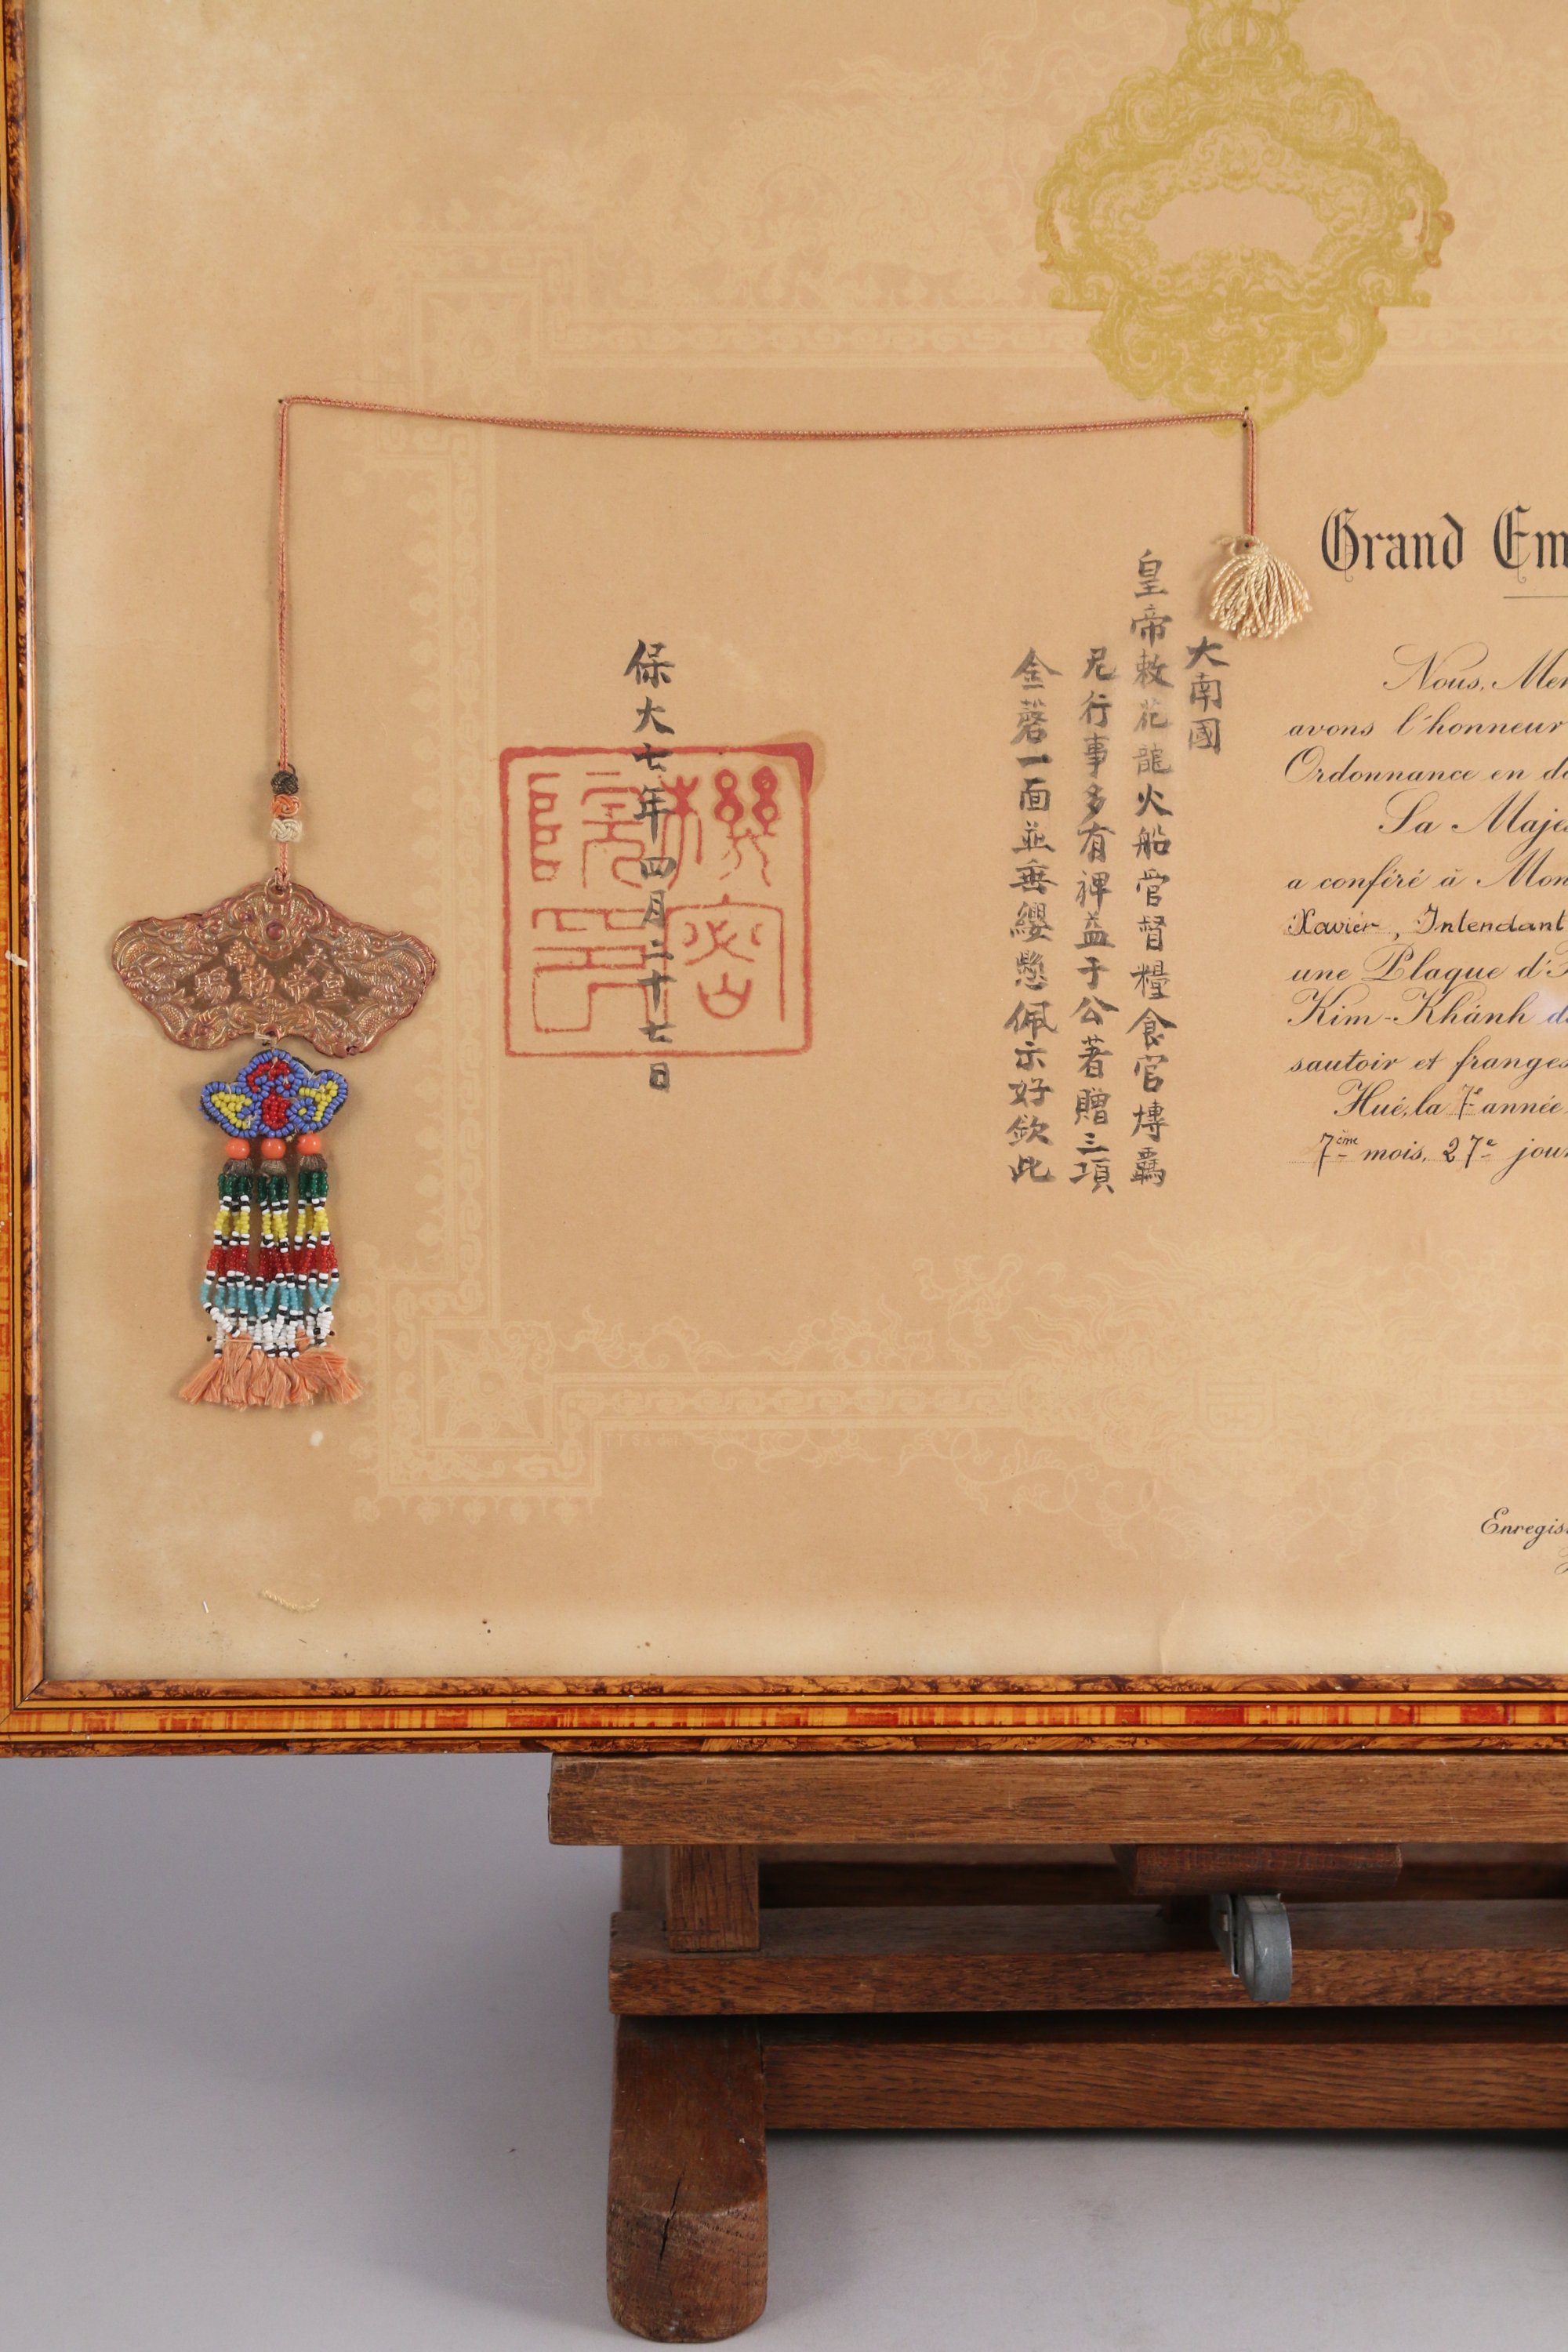 大南國
皇帝敕花龍火船官督糧食官愽覊
尼行事多有裨益于公著贈三項
金磬一面並垂纓懸佩示好欽此
保大七年四月二十七日
機密院印
大皇帝敕賜
Grand Em
Nous, Mem
avons l'honneur
Ordonnance en da
Sa Majes
a conféré à Mon
Xavier, Intendant
une Plaque d'
Kim-Khánh d
sautoir et franges
Hué, la 7e année
7ème mois, 27e jour
Enregis